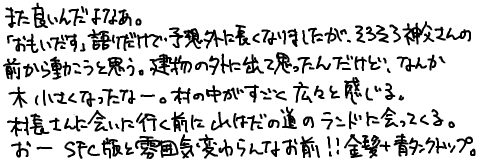 また良いんだよなぁ。
「おもいだす」語りだけで予想外に長くなりましたが、そろそろ神父さんの
前から動こうと思う。建物の外に出て思ったんだけど、なんか
木 小さくなったなー。村の中がすごく広々と感じる。
村長さんに会いに行く前に 山はだの道のランドに会ってくる。
おー SFC版と雰囲気変わらんなお前!!金髪+青タンクトップ。